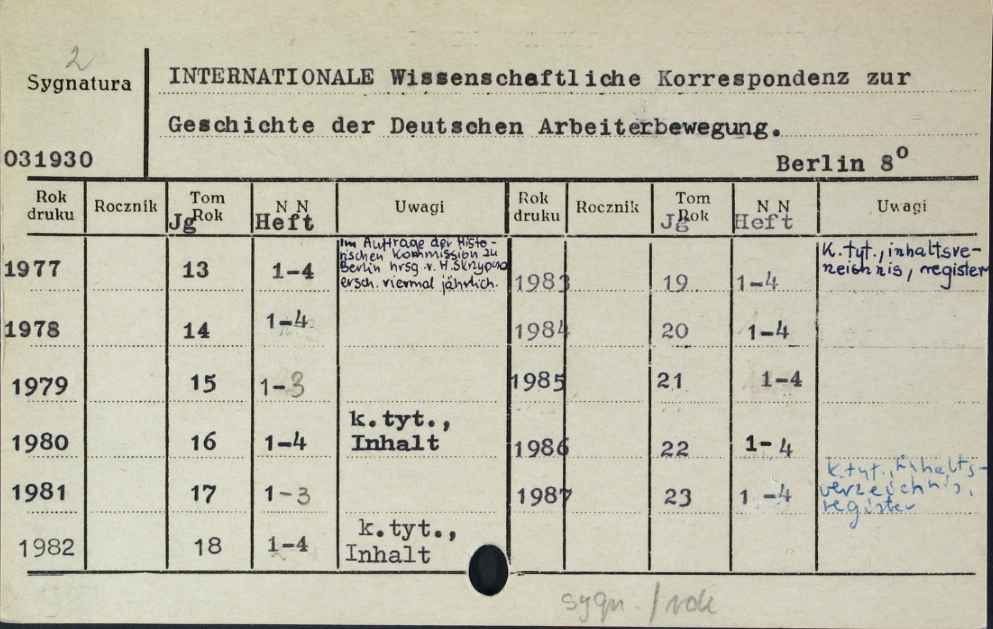 2
Sygnatura
INTERNATIONALE Wissenschaftliche Korrespondenz zur
Geschichte der Deutschen Arbeiterbewegung.
031930
Berlin 8°
Rok druku Rocznik Tom Jg Rok N N Heft Uwagi Rok druku Rocznik Tom Jg Rok N N Heft Uwagi
1977 13 1-4
Im Auftrage der Histo-
rischen Kommission zu
Berlin hrsg. v. H. Skrzypczak
ersch. viermal jährlich.
1983 19 1-4
K. tyt., inhaltsve-
rzeichnis, register
1978 14 1-4 1984 20 1-4
1979 15 1-3 1985 21 1-4
1980 16 1-4
k.tyt.,
Inhalt
1986 22 1-4
1981 17 1-3 1987 23 1-4
k.tyt., inhalts-
verzeichnis,
register
1982 18 1-4
k.tyt.,
Inhalt
sygn. / rok